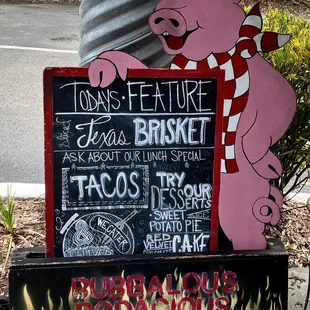 TODAYS · FEATURE
Texas BRISKET
ASK ABOUT OUR LUNCH SPECIAL
TACOS
TRY OUR
DESSERTS
SWEET
POTATO PIE
RED VELVET CAKE
WE CATER
BUBBALOU'S
BODACIOUS